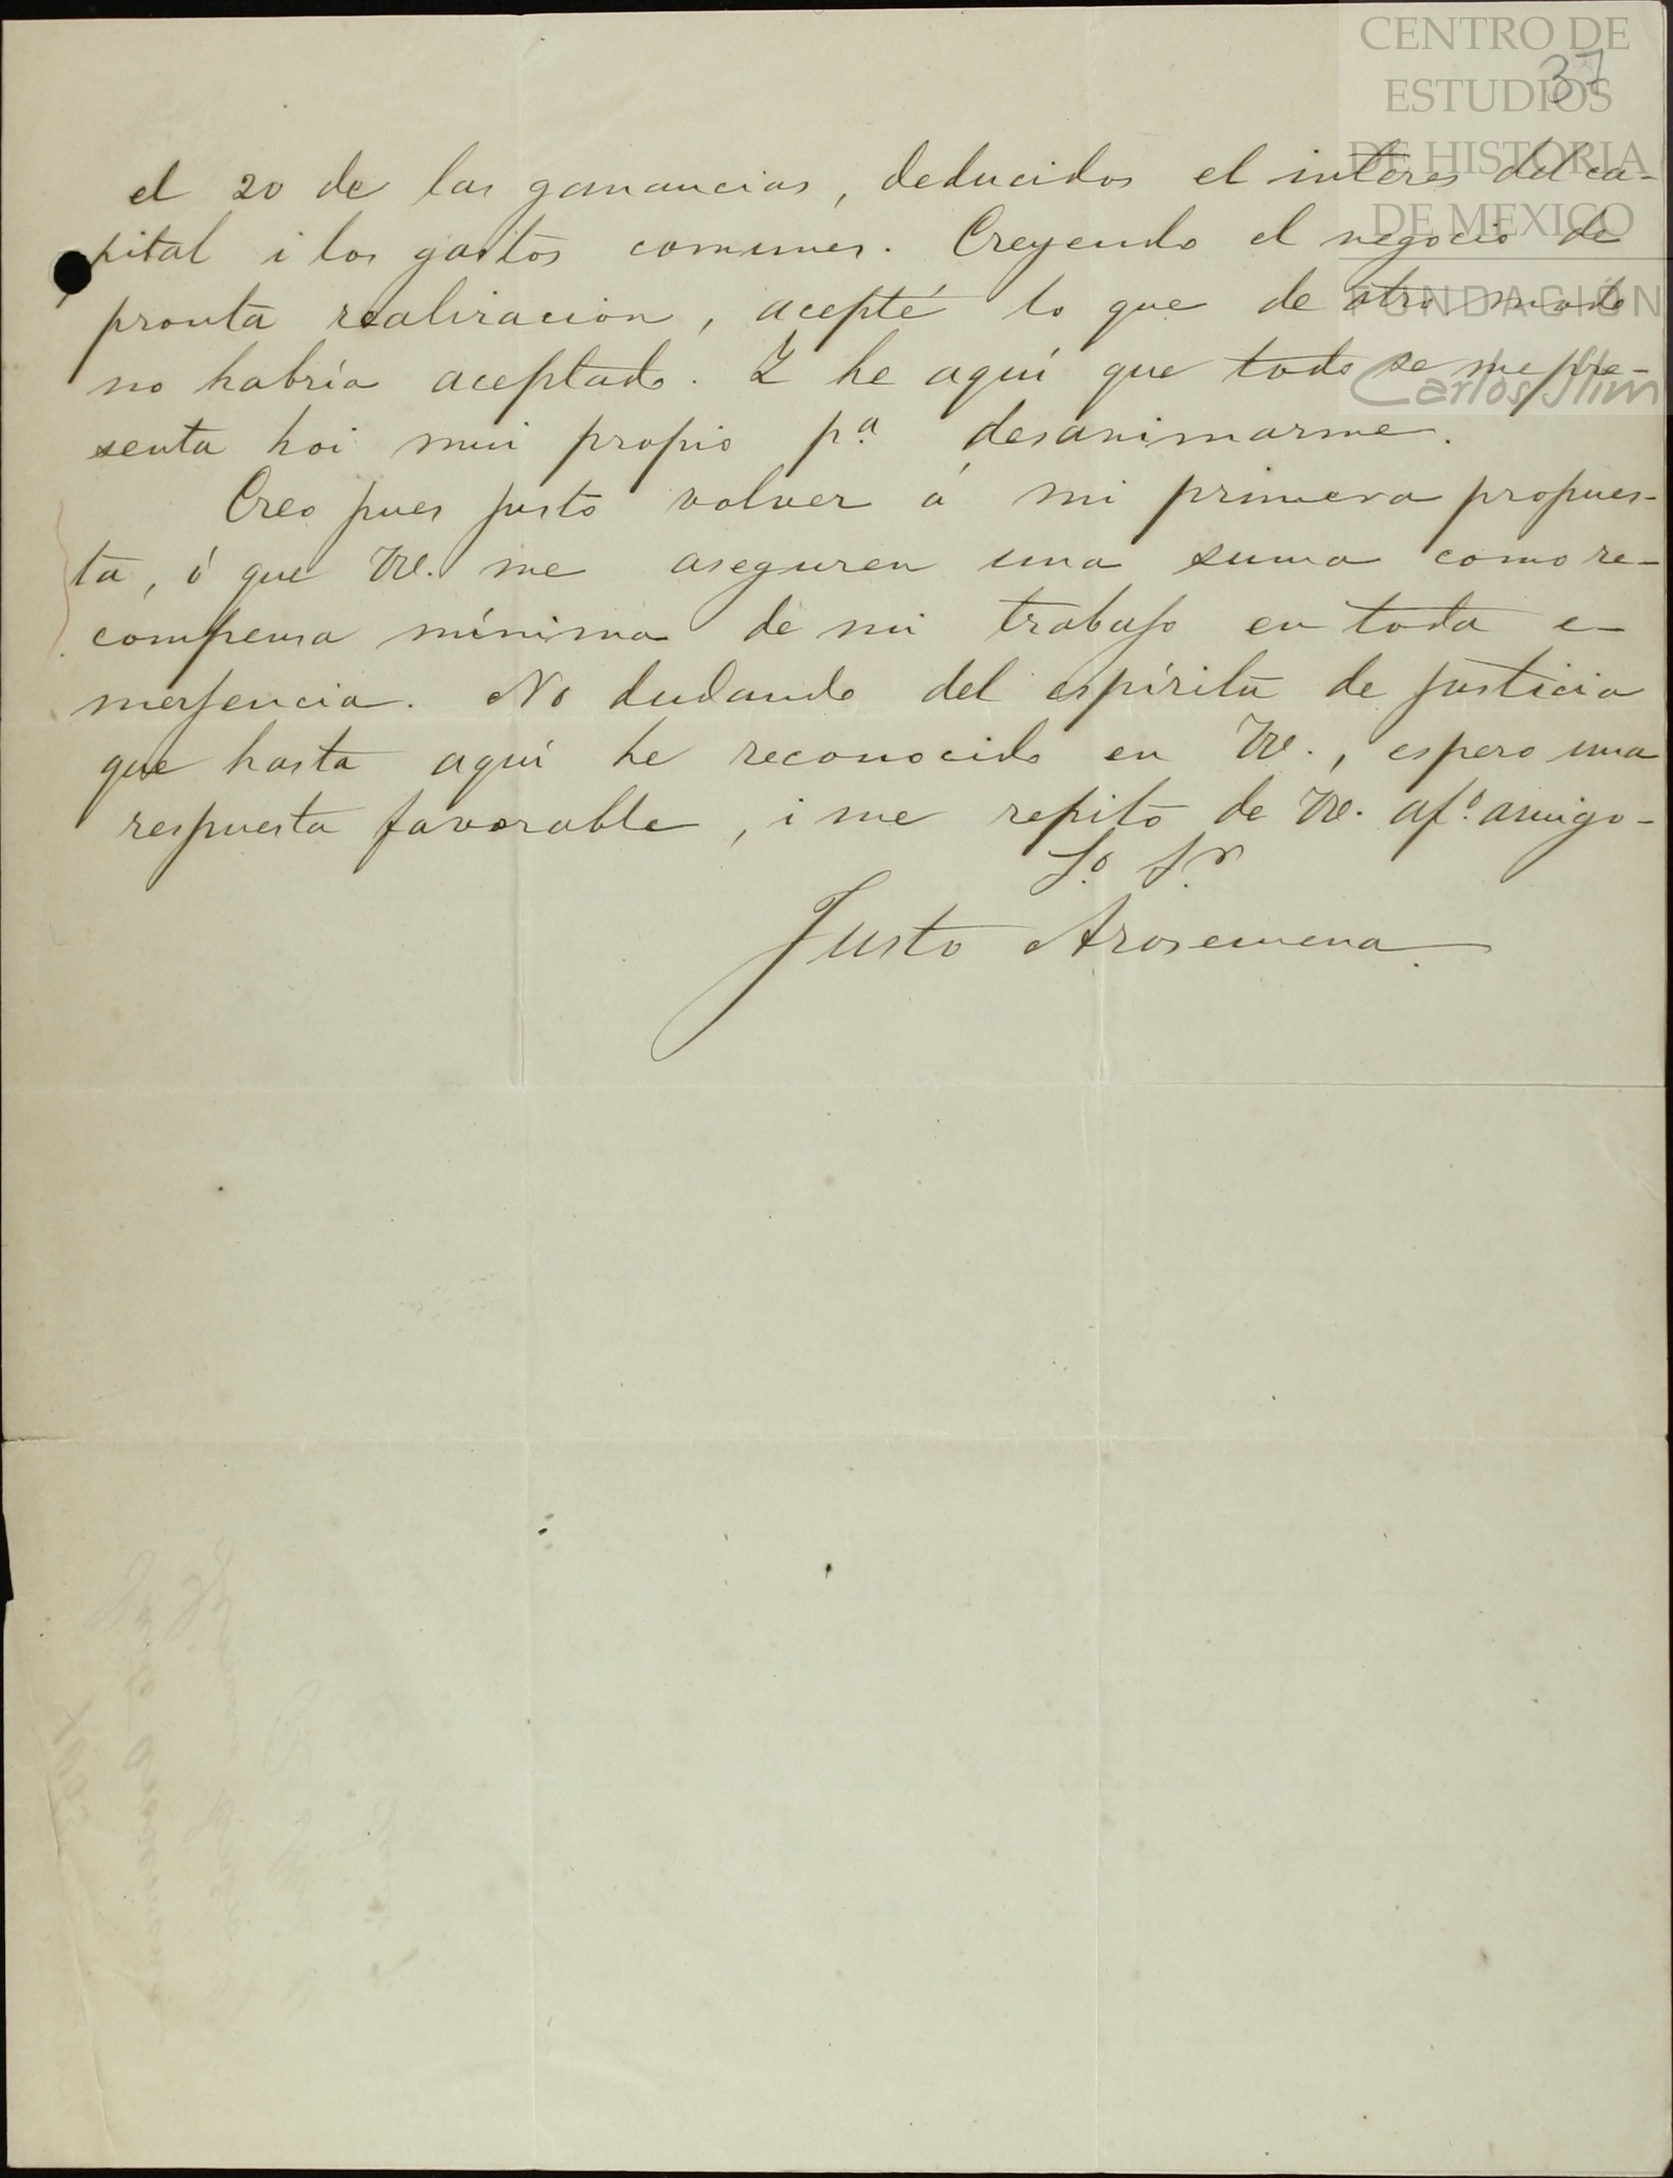 CENTRO DE
ESTUDIOS
DE HISTORIA
DE MEXICO
FUNDACIÓN
Carlos Slim
37
el 20 de las ganancias, deducidos el interes del ca-
pital i los gastos comunes. Creyendo el negocio de
pronta realizacion, acepté lo que de otro modo
no habría aceptado. I he aquí que todo se me pre-
senta hoi mui propio pª desanimarme.
Creo pues justo volver á mi primera propues-
ta, ó que VV. me aseguren una suma como re-
compensa mínima de mi trabajo en toda e-
merjencia. No dudando del espíritu de justicia
que hasta aquí he reconocido en VV., espero una
respuesta favorable, i me repito de VV. afº. amigo-
Sº Sʳ
Justo Arosemena